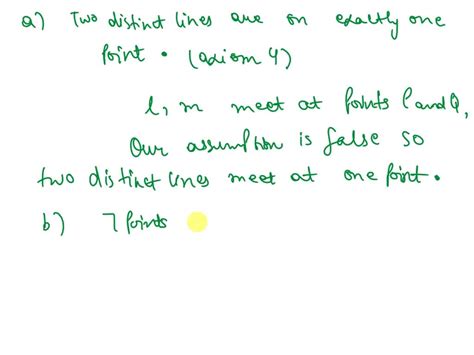 a) Two distinct lines are on exactly one
point . (axiom 4)
l, m meet at points P and Q,
Our assumption is false so
two distinct lines meet at one point.
b) 7 points